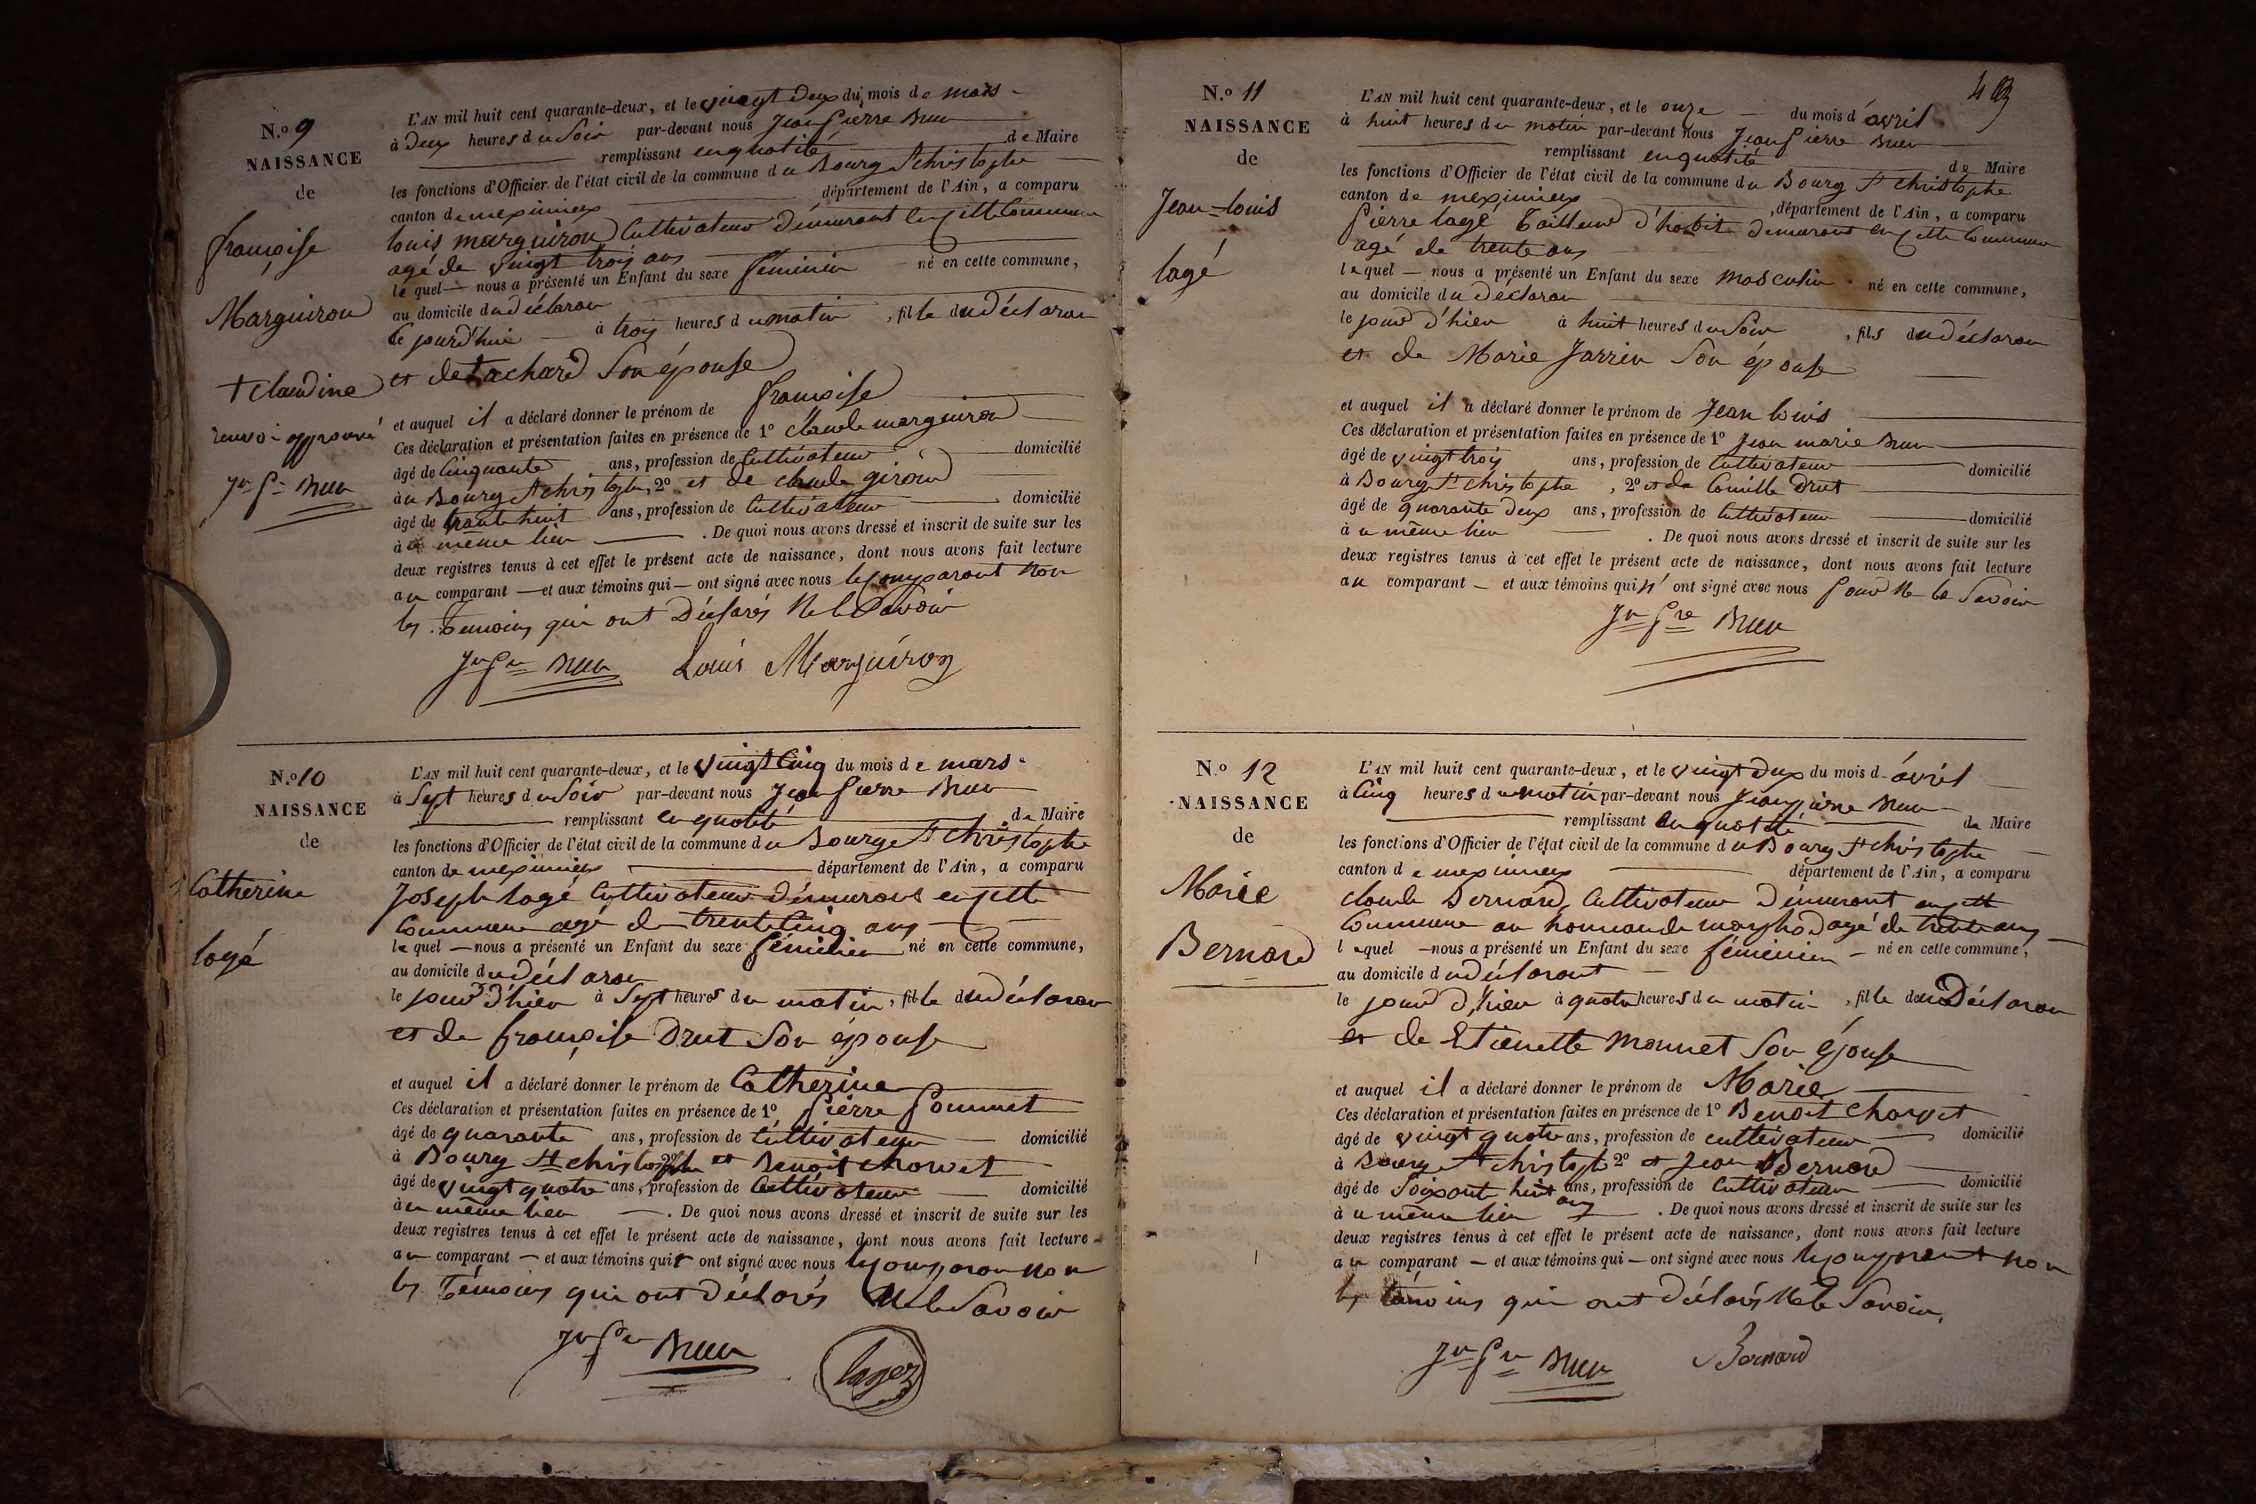 N.º 9
NAISSANCE
de
françoise
Marguiron
+ Claudine
renvoi approuvé
Jn Pre Brun
L'AN mil huit cent quarante-deux, et le vingt deux du mois de mars
à Deux heures du Soir par-devant nous Jean Pierre Brun
remplissant en qualité de Maire
les fonctions d'Officier de l'état civil de la commune du Bourg St christophe
canton de meximieux département de l'Ain, a comparu
louis marguiron Cultivateur démurant en cette Commune
agé de vingt trois ans
le quel nous a présenté un Enfant du sexe féminin né en cette commune,
au domicile du déclaran
ce jourd'hui à trois heures du matin, fille du déclaran
et de tachard Son épouse
et auquel il a déclaré donner le prénom de françoise
Ces déclaration et présentation faites en présence de 1º claude marguiron
âgé de Cinquante ans, profession de Cultivateur domicilié
au Bourg St christophe, 2º et de claude giroud
âgé de trante huit ans, profession de Cultivateur domicilié
au même lieu. De quoi nous avons dressé et inscrit de suite sur les
deux registres tenus à cet effet le présent acte de naissance, dont nous avons fait lecture
au comparant et aux témoins qui ont signé avec nous le comparant Non
les Temoins qui ont Déclarés Ne le Savoir
Jn Pre Brun Louis Marguiron
N.º 10
NAISSANCE
de
Catherine
lagé
L'AN mil huit cent quarante-deux, et le vingt Cinq du mois de mars
à Sept heures du Soir par-devant nous Jean Pierre Brun
remplissant en qualité de Maire
les fonctions d'Officier de l'état civil de la commune du Bourg St Christophe
canton de meximieux département de l'Ain, a comparu
Joseph lagé Cultivateur démurant en cette
Commune agé de trente Cinq ans
le quel nous a présenté un Enfant du sexe féminin né en cette commune,
au domicile du déclaran
le jour d'hier à Sept heures du matin, fille du déclaran
et de françoise Drut Son épouse
et auquel il a déclaré donner le prénom de Catherine
Ces déclaration et présentation faites en présence de 1º Pierre Pommet
âgé de quarante ans, profession de Cultivateur domicilié
à Bourg St christophe 2º et Benoit chorvet
âgé de vingt quatre ans, profession de Cultivateur domicilié
au même lieu. De quoi nous avons dressé et inscrit de suite sur les
deux registres tenus à cet effet le présent acte de naissance, dont nous avons fait lecture
au comparant et aux témoins qui ont signé avec nous le comparan non
les Témoins qui ont Déclarés Ne le Savoir
Jn Pre Brun lagez
N.º 11
NAISSANCE
de
Jean-louis
lagé
L'AN mil huit cent quarante-deux, et le onze du mois d'avril
à huit heures du matin par-devant nous Jean Pierre Brun
remplissant en qualité de Maire
les fonctions d'Officier de l'état civil de la commune du Bourg St Christophe
canton de meximieux, département de l'Ain, a comparu
Pierre lagé Tailleur d'habit demurant en cette Commune
agé de trente ans
le quel nous a présenté un Enfant du sexe masculin né en cette commune,
au domicile du Déclaran
le jour d'hier à huit heures du Soir, fils du déclaran
et de Marie Jarrin Son épouse
et auquel il a déclaré donner le prénom de Jean louis
Ces déclaration et présentation faites en présence de 1º Jean marie Brun
âgé de vingt trois ans, profession de Cultivateur domicilié
à Bourg St christophe, 2º et de Camille Drut
âgé de quarante deux ans, profession de Cultivateur domicilié
au même lieu. De quoi nous avons dressé et inscrit de suite sur les
deux registres tenus à cet effet le présent acte de naissance, dont nous avons fait lecture
au comparant et aux témoins qui n'ont signé avec nous Pour Ne le Savoir
Jn Pre Brun
N.º 12
NAISSANCE
de
Marie
Bernard
L'AN mil huit cent quarante-deux, et le vingt deux du mois d'avril
à Cinq heures du matin par-devant nous Jean pierre Brun
remplissant en qualité de Maire
les fonctions d'Officier de l'état civil de la commune du Bourg St christophe
canton de meximieux département de l'Ain, a comparu
claude Bernard Cultivateur Démurant en cette
Commune au hameau de agé de trente ans
lequel nous a présenté un Enfant du sexe féminin né en cette commune,
au domicile du déclarant
le jour d'hier à quatre heures du matin, fille du Déclaran
et de Etienette Monnet Son épouse
et auquel il a déclaré donner le prénom de Marie
Ces déclaration et présentation faites en présence de 1º Benoit Chorvet
âgé de vingt quatre ans, profession de cultivateur domicilié
à Bourg St Christophe 2º et Jean Bernard
âgé de Soixante huit ans, profession de Cultivateur domicilié
au même lieu. De quoi nous avons dressé et inscrit de suite sur les
deux registres tenus à cet effet le présent acte de naissance, dont nous avons fait lecture
au comparant et aux témoins qui ont signé avec nous le comparent non
les témoins qui ont Déclarés Ne le Savoir.
Jn Pre Brun Bernard